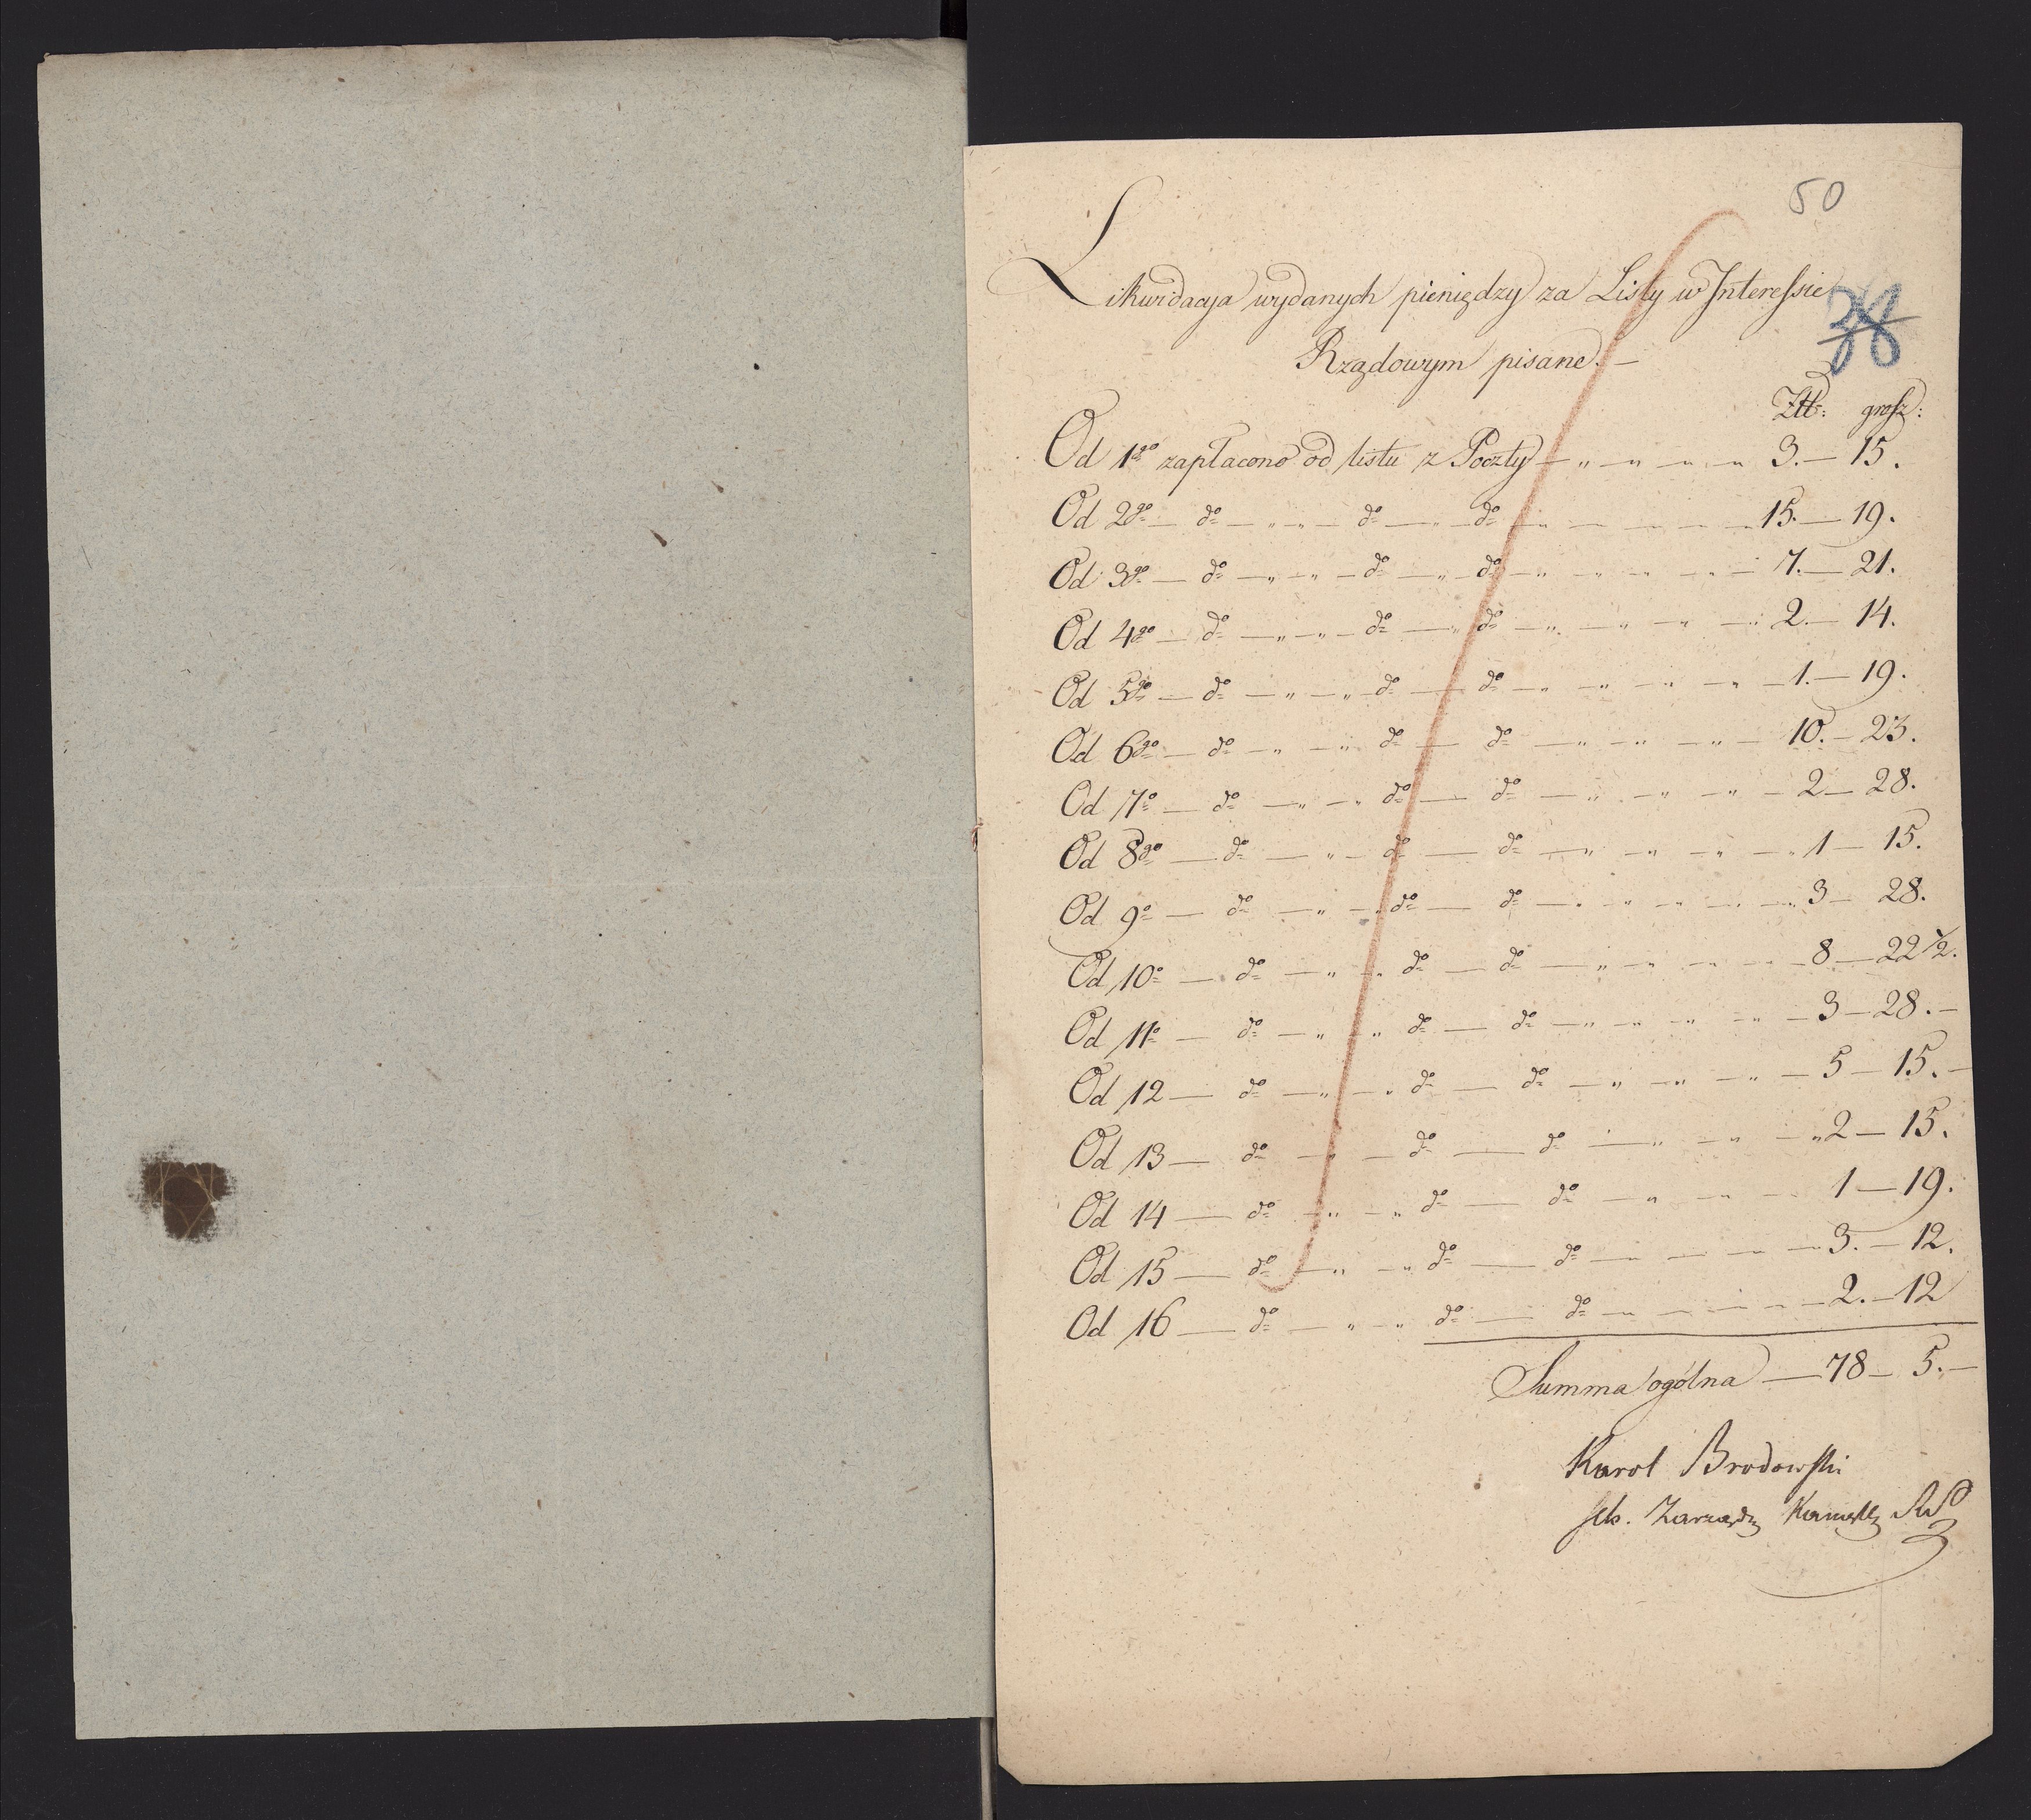 50
Likwidacya wydanych pieniędzy za Listy w Interessie
38
Rządowym pisane. —
Złł: grosz:
Od 1go zapłacono od listu z Poczty — „ — „ — „ — „ — 3. — 15.
Od 2go — do — „ — „ — do — „ — do — „ — „ — „ — „ — 15. — 19.
Od 3go — do — „ — „ — do — „ — do — „ — „ — „ — „ — 7. — 21.
Od 4go — do — „ — „ — do — „ — do — „ — „ — „ — „ 2. — 14.
Od 5go — do — „ — „ do — do — „ — „ — „ — „ — 1. — 19.
Od 6go — do — „ — „ do — do — „ — „ — „ — 10. — 23.
Od 7o — do — „ — „ do — do — „ — „ — „ — 2 — 28.
Od 8go — do — „ — do — do — „ — „ — „ — „ 1 — 15.
Od 9o — do — „ — „ do — do — „ — „ — „ — „ 3 — 28.
Od 10o — do — „ — „ do — do — „ — „ — „ — 8 — 22 1/2.
Od 11o — do — „ — „ do — do — „ — „ — „ — „ — 3 — 28. —
Od 12 — do — „ — „ do — do — „ — „ — „ — 5 — 15. —
Od 13 — do — „ — do — do — „ — „ — „ 2 — 15.
Od 14 — do — „ — „ do — do — „ — „ — 1 — 19.
Od 15 — do — „ — „ do — do — „ — „ — „ — 3. — 12.
Od 16 — do — „ — „ do — do — „ — „ — „ — 2. — 12
Summa ogólna — 78 — 5. —
Karol Brodowski